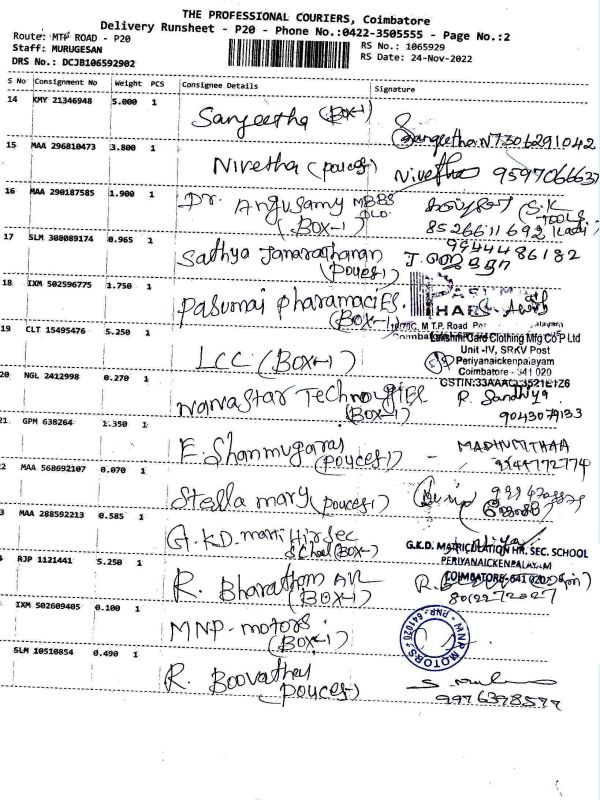 THE PROFESSIONAL COURIERS, Coimbatore
Delivery Runsheet - P20 - Phone No.:0422-3505555 - Page No.:2
Route: MTP ROAD - P20
RS No.: 1065929
Staff: MURUGESAN
RS Date: 24-Nov-2022
DRS No.: DCJB106592902
S No Consignment No Weight PCS Consignee Details Signature
14 KMY 21346948 5.000 1
Sangeetha (Box-1)
Sangeetha.N 7306291042
15 MAA 296810473 3.800 1
Nivetha (pouces-1)
Nivetha 9597066637
16 MAA 290187585 1.900 1
Dr. Angusamy MBBS
(BOX-1)
(S.K
TOOLS
8526611692
17 SLM 308089174 0.965 1
9944486182
Sathya Janarathanan
(Pouces-1)
18 IXM 502596775 1.750 1
Pasumai pharamacies.
(BOX-1)
M.T.P. Road
19 CLT 15495476 5.250 1
LCC (BOX-1)
Lakshmi Card Clothing Mfg Co P Ltd
Unit -IV, SRKV Post
Periyanaickenpalayam
Coimbatore - 641 020
GSTIN:33AAACL3521E1Z6
20 NGL 2412998 0.270 1
Navastar Technologies
(BOX-1)
R. Sandhiya
9043079133
21 GPM 638264 1.350 1
E. Shanmugaraj
(Pouces-1)
- MADHUMITHAA
9344772774
2 MAA 568692107 0.070 1
Stella mary (pouces-1)
3 MAA 288592213 0.585 1
G.KD. matri Hir Sec
School (BOX-1)
G.K.D. MATRICULATION HR. SEC. SCHOOL
PERIYANAICKENPALAYAM
COIMBATORE-641 020
RJP 1121441 5.250 1
R. Bharathan
(BOX-1)
8012272027
IXM 502609405 0.100 1
MNP-motors
(BOX-1)
MNP MOTORS * PNP-641020 *
SLM 10510854 0.490 1
R. Boovathey
(pouces-1)